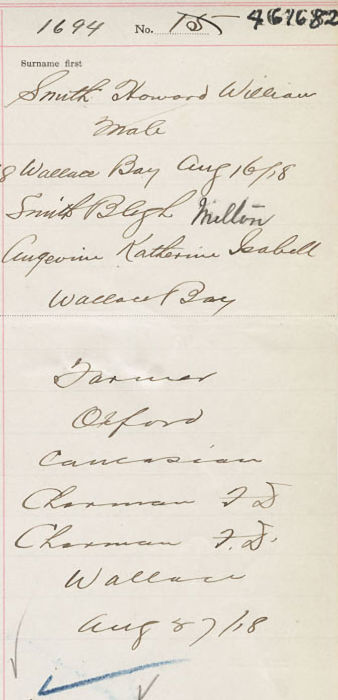 1694 No. 155 467682
Surname first
Smith Howard William
Male
8 Wallace Bay Aug 16/18
Smith Blegh Milton
Angevine Katherine Isabell
Wallace Bay
Farmer
Oxford
Caucasian
Charman F D
Charman F. D.
Wallace
Aug 27/18